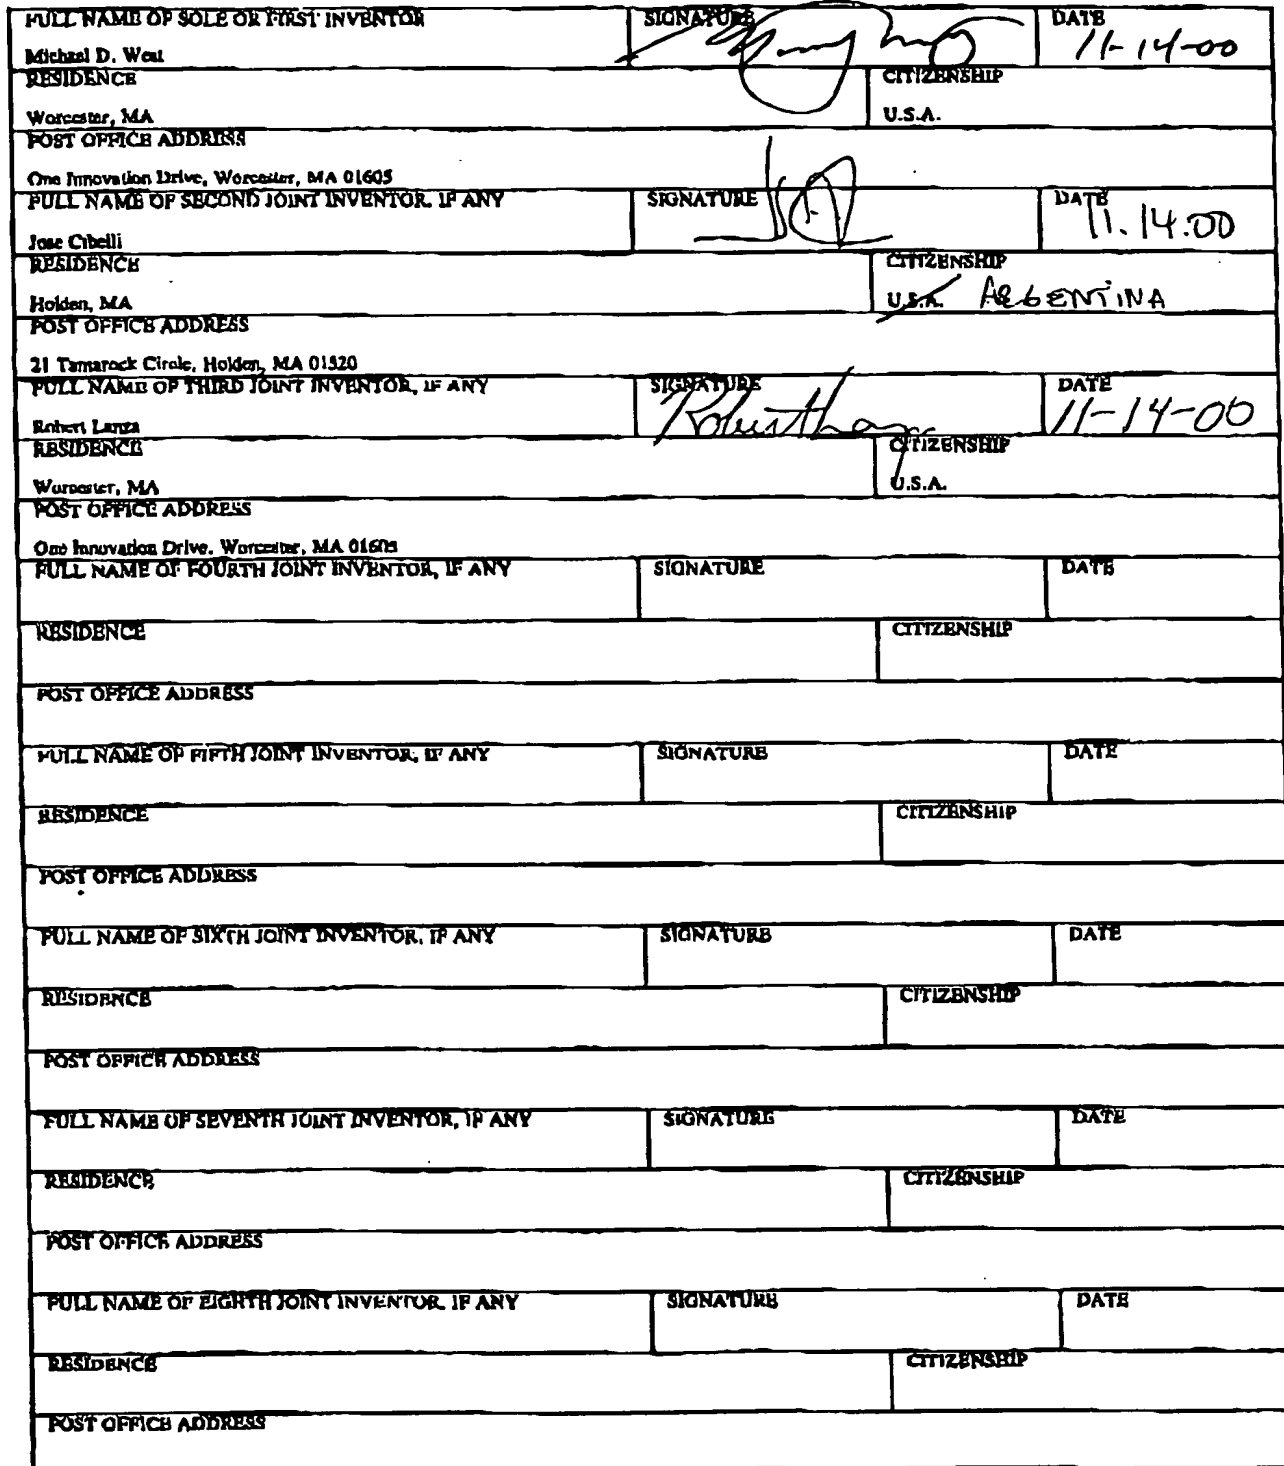 FULL NAME OF SOLE OR FIRST INVENTOR SIGNATURE DATE
Michael D. West 11-14-00
RESIDENCE CITIZENSHIP
Worcester, MA U.S.A.
POST OFFICE ADDRESS
One Innovation Drive, Worcester, MA 01605
FULL NAME OF SECOND JOINT INVENTOR, IF ANY SIGNATURE DATE
Jose Cibelli 11.14.00
RESIDENCE CITIZENSHIP
Holden, MA U.S.A. ARGENTINA
POST OFFICE ADDRESS
21 Tamarock Circle, Holden, MA 01520
FULL NAME OF THIRD JOINT INVENTOR, IF ANY SIGNATURE DATE
Robert Lanza 11-14-00
RESIDENCE CITIZENSHIP
Worcester, MA U.S.A.
POST OFFICE ADDRESS
One Innovation Drive, Worcester, MA 01605
FULL NAME OF FOURTH JOINT INVENTOR, IF ANY SIGNATURE DATE
RESIDENCE CITIZENSHIP
POST OFFICE ADDRESS
FULL NAME OF FIFTH JOINT INVENTOR, IF ANY SIGNATURE DATE
RESIDENCE CITIZENSHIP
POST OFFICE ADDRESS
FULL NAME OF SIXTH JOINT INVENTOR, IF ANY SIGNATURE DATE
RESIDENCE CITIZENSHIP
POST OFFICE ADDRESS
FULL NAME OF SEVENTH JOINT INVENTOR, IF ANY SIGNATURE DATE
RESIDENCE CITIZENSHIP
POST OFFICE ADDRESS
FULL NAME OF EIGHTH JOINT INVENTOR, IF ANY SIGNATURE DATE
RESIDENCE CITIZENSHIP
POST OFFICE ADDRESS